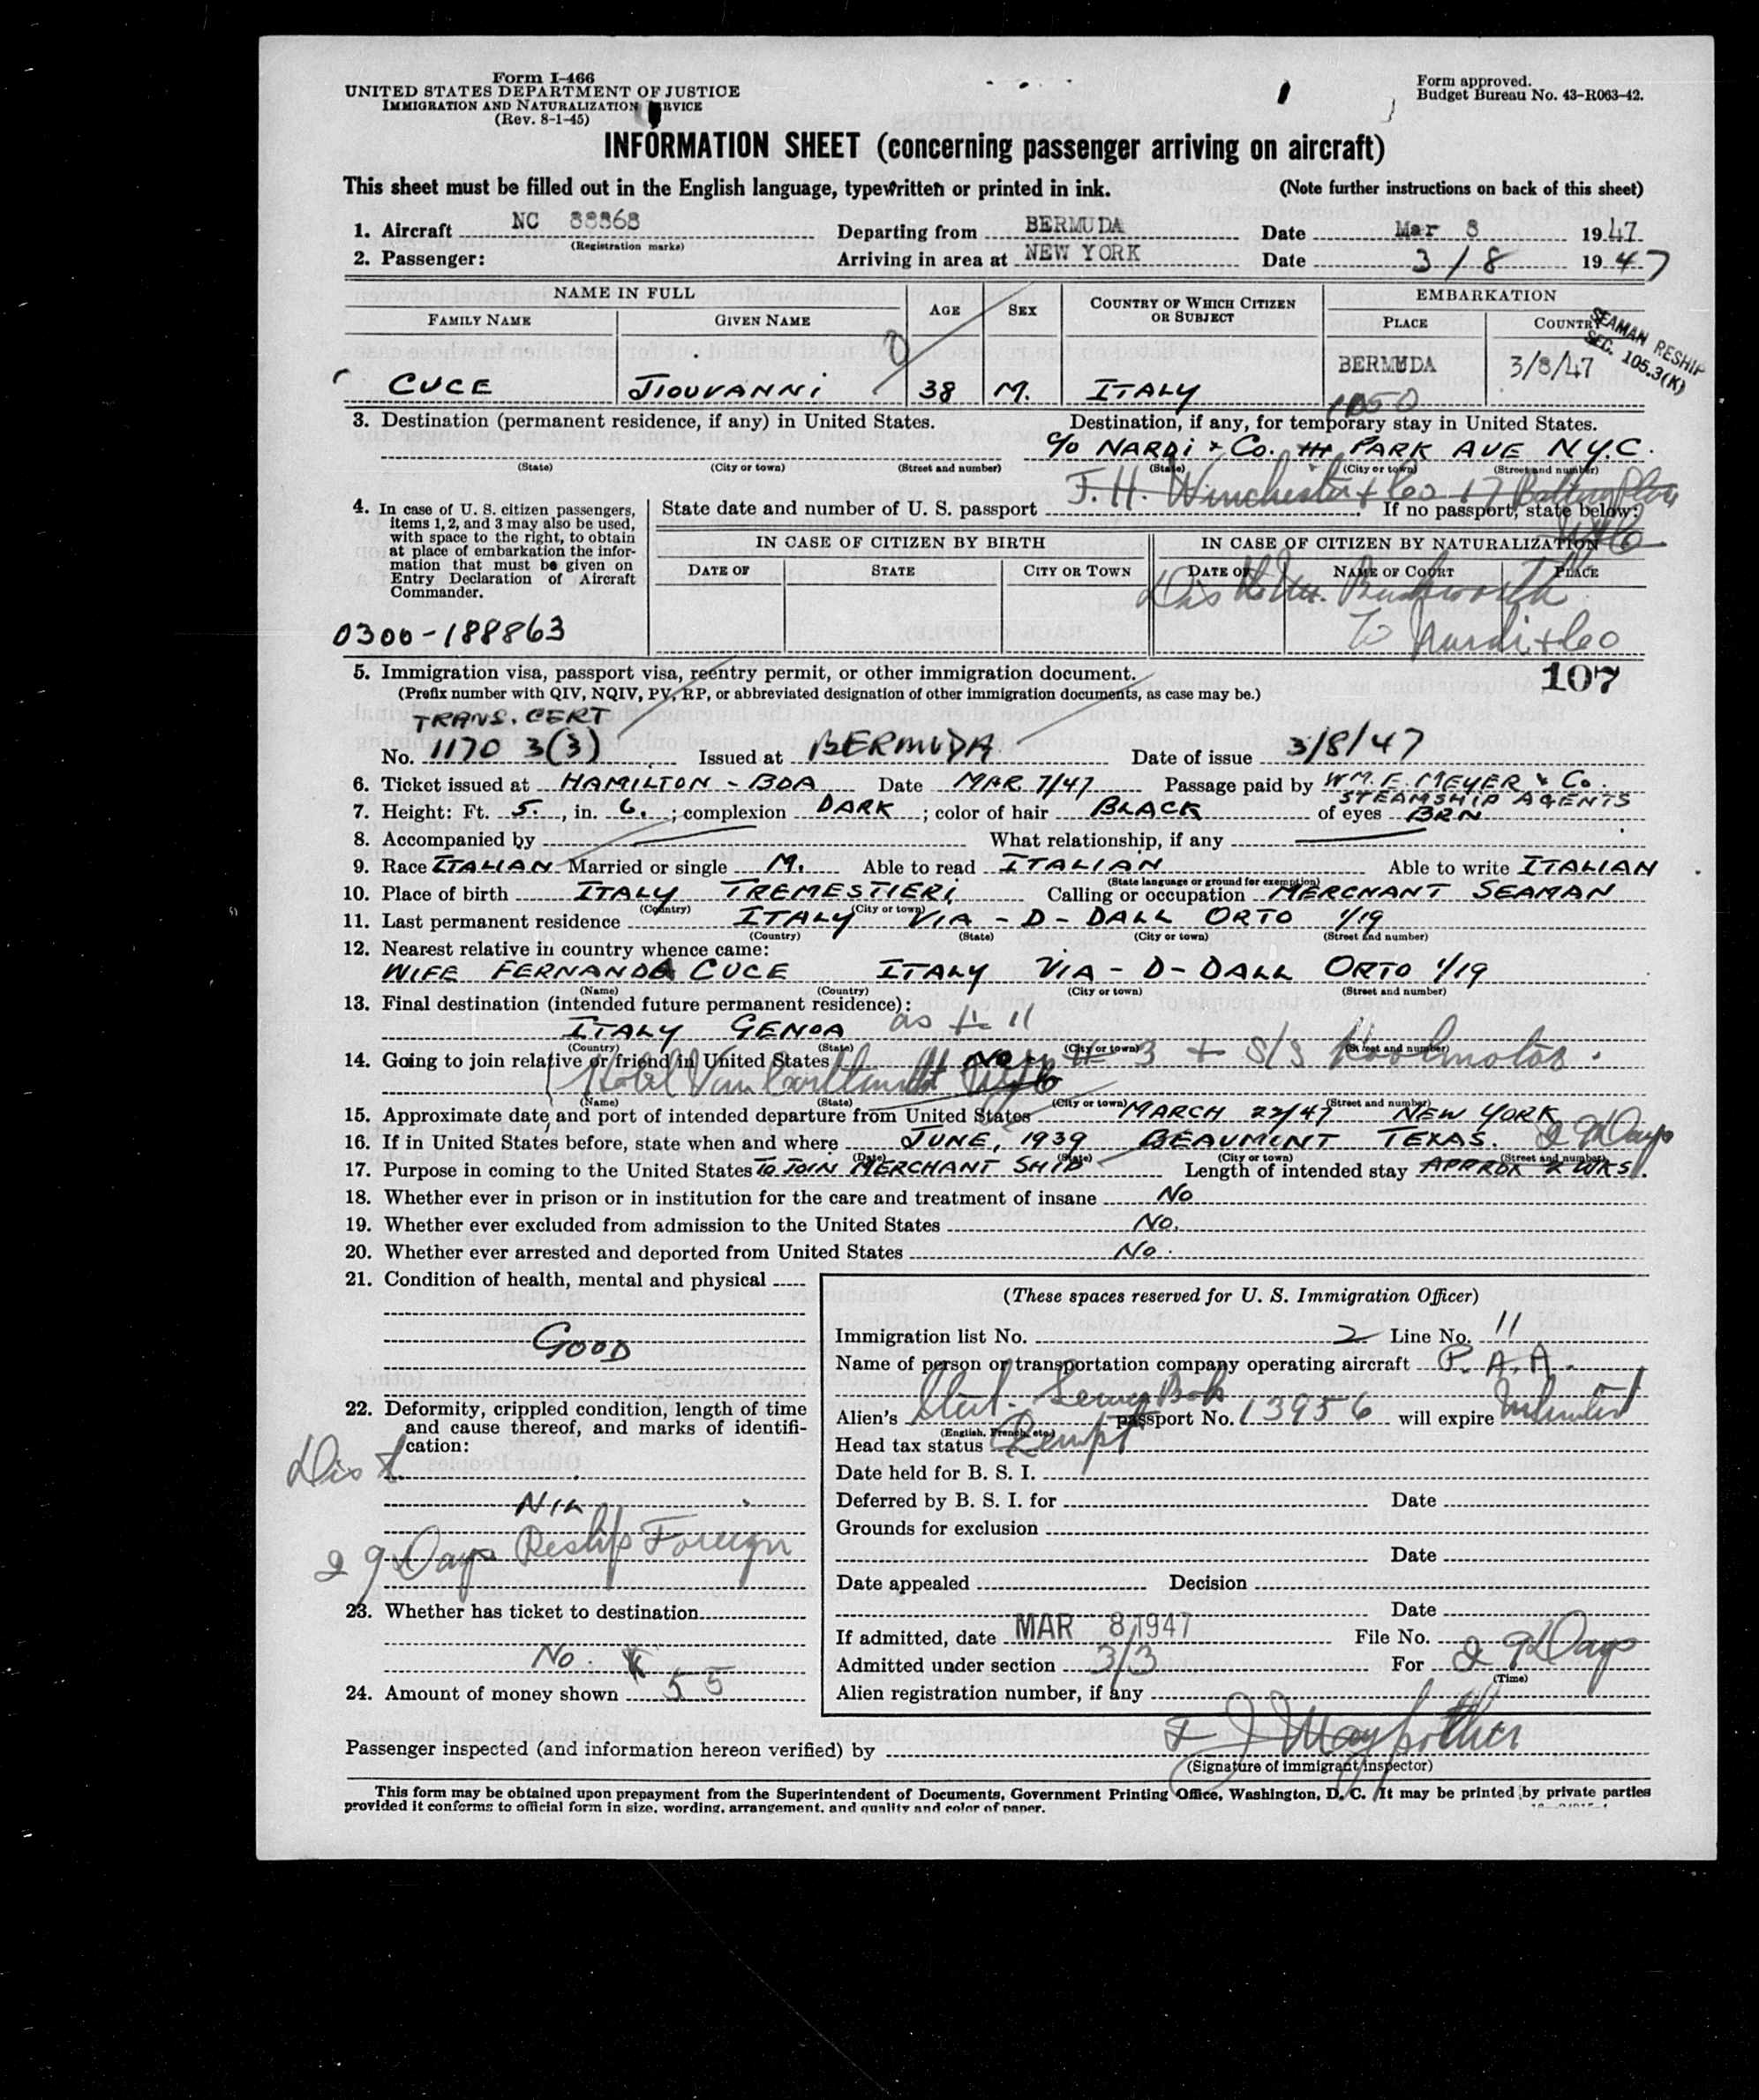 Form I-466
UNITED STATES DEPARTMENT OF JUSTICE
IMMIGRATION AND NATURALIZATION RVICE
(Rev. 8-1-45)
Form approved.
Budget Bureau No. 43-R063-42.
INFORMATION SHEET (concerning passenger arriving on aircraft)
This sheet must be filled out in the English language, typewritten or printed in ink. (Note further instructions on back of this sheet)
1. Aircraft NC 88868 Departing from BERMUDA Date Mar 8 1947
(Registration marks)
2. Passenger: Arriving in area at NEW YORK Date 3/8 1947
NAME IN FULL AGE SEX COUNTRY OF WHICH CITIZEN OR SUBJECT EMBARKATION
FAMILY NAME GIVEN NAME PLACE COUNTRY
SEAMAN RESHIP
SEC. 105.3(K)
CUCE JIOUVANNI 38 M. ITALY BERMUDA 3/8/47
3. Destination (permanent residence, if any) in United States. Destination, if any, for temporary stay in United States.
1050
c/o NARDI & Co. PARK AVE N.Y.C.
(State) (City or town) (Street and number) (State) (City or town) (Street and number)
F. H. Winchester & Co 17 Battery Place
4. In case of U. S. citizen passengers, items 1, 2, and 3 may also be used, with space to the right, to obtain at place of embarkation the information that must be given on Entry Declaration of Aircraft Commander.
State date and number of U. S. passport If no passport, state below:
IN CASE OF CITIZEN BY BIRTH IN CASE OF CITIZEN BY NATURALIZATION
DATE OF STATE CITY OR TOWN DATE OF NAME OF COURT PLACE
To Nardi & Co
0300-188863
107
5. Immigration visa, passport visa, reentry permit, or other immigration document.
(Prefix number with QIV, NQIV, PV, RP, or abbreviated designation of other immigration documents, as case may be.)
TRANS. CERT
No. 1170 3(3) Issued at BERMUDA Date of issue 3/8/47
6. Ticket issued at HAMILTON - BDA Date MAR 7/47 Passage paid by WM. E. MEYER & Co.
STEAMSHIP AGENTS
7. Height: Ft. 5, in. 6; complexion DARK; color of hair BLACK of eyes BRN
8. Accompanied by What relationship, if any
9. Race ITALIAN Married or single M. Able to read ITALIAN Able to write ITALIAN
(State language or ground for exemption)
10. Place of birth ITALY TREMESTIERI Calling or occupation MERCHANT SEAMAN
(Country) (City or town)
11. Last permanent residence ITALY VIA - D - DALL ORTO 1/19
(Country) (State) (City or town) (Street and number)
12. Nearest relative in country whence came:
WIFE FERNANDA CUCE ITALY VIA - D - DALL ORTO 1/19
(Name) (Country) (City or town) (Street and number)
13. Final destination (intended future permanent residence):
ITALY GENOA as # 11
(Country) (State) (City or town) (Street and number)
14. Going to join relative or friend in United States No # 3 + S/S
Hotel Van Cortlandt
(Name) (State) (City or town) (Street and number)
15. Approximate date and port of intended departure from United States MARCH 22/47 NEW YORK
16. If in United States before, state when and where JUNE, 1939 BEAUMONT TEXAS. 29 Days
(Date) (State) (City or town) (Street and number)
17. Purpose in coming to the United States TO JOIN MERCHANT SHIP Length of intended stay APPROX 2 WKS.
18. Whether ever in prison or in institution for the care and treatment of insane No
19. Whether ever excluded from admission to the United States No.
20. Whether ever arrested and deported from United States No.
21. Condition of health, mental and physical
GOOD
22. Deformity, crippled condition, length of time and cause thereof, and marks of identification:
NIL
29 Days Reship Foreign
23. Whether has ticket to destination
No.
24. Amount of money shown 55
(These spaces reserved for U. S. Immigration Officer)
Immigration list No. 2 Line No. 11
Name of person or transportation company operating aircraft P. A. A.
Alien's passport No. 13956 will expire Unlimited
(English, French, etc.)
Head tax status Exempt
Date held for B. S. I.
Deferred by B. S. I. for Date
Grounds for exclusion
Date
Date appealed Decision
Date
If admitted, date MAR 8 1947 File No.
Admitted under section 3/3 For 29 Days
(Time)
Alien registration number, if any
Passenger inspected (and information hereon verified) by
(Signature of immigrant inspector)
This form may be obtained upon prepayment from the Superintendent of Documents, Government Printing Office, Washington, D. C. It may be printed by private parties
provided it conforms to official form in size, wording, arrangement, and quality and color of paper.